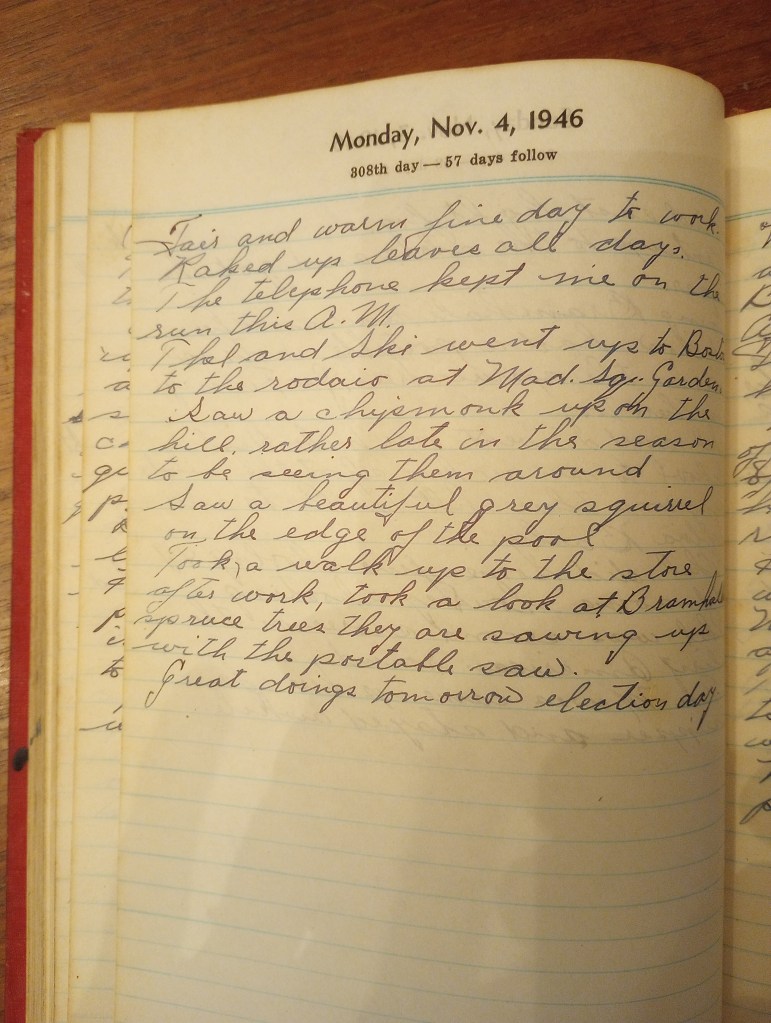 Monday, Nov. 4, 1946
308th day — 57 days follow
Fair and warm fine day to work.
Raked up leaves all days.
The telephone kept me on the
run this A.M.
and Ski went up to
to the rodaio at Mad. Sq. Garden.
Saw a chipmonk up on the
hill, rather late in the season
to be seeing them around
Saw a beautiful grey squirrel
on the edge of the pool
Took a walk up to the store
after work, took a look at
spruce trees they are sawing up
with the portable saw.
Great doings tomorrow election day